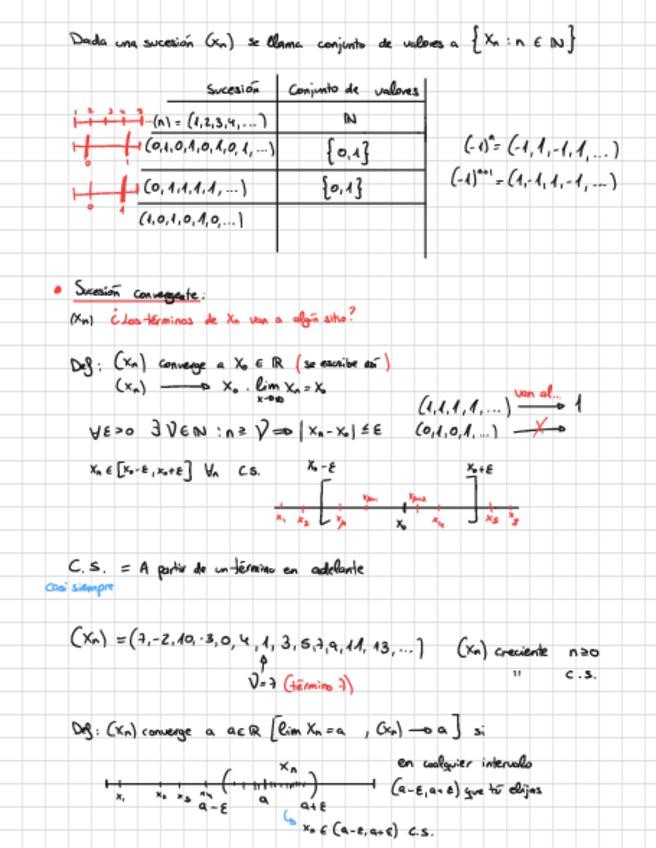 Dada una sucesión (xₙ) se llama conjunto de valores a {xₙ : n ∈ ℕ}
Sucesión Conjunto de valores
1 2 3 4 5 (n) = (1,2,3,4,...) ℕ
0 1 (0,1,0,1,0,1,0,1,...) {0,1}
(-1)ⁿ = (-1,1,-1,1,...)
0 1 (0,1,1,1,1,...) {0,1}
(-1)ⁿ⁺¹ = (1,-1,1,-1,...)
(1,0,1,0,1,0,...)
• Sucesión convergente:
(xₙ) ¿Los términos de xₙ van a algún sitio?
Def: (xₙ) converge a x₀ ∈ ℝ (se escribe así)
(xₙ) ⟶ x₀ . lim xₙ = x₀
x→∞
(1,1,1,1,...) van al... ⟶ 1
∀ε>0 ∃ν∈ℕ : n ≥ ν ⟹ |xₙ-x₀| ≤ ε (0,1,0,1,...) ⟶ X
xₙ ∈ [x₀-ε, x₀+ε] ∀ₙ c.s.
x₀-ε x₀+ε
x₁ x₂ x₀ x₄ x₃
C.S. = A partir de un término en adelante
Casi siempre
(xₙ) = (7,-2,10,-3,0,4,1,3,5,7,9,11,13,...) (xₙ) creciente n≥0
" c.s.
ν=7 (término 7)
Def: (xₙ) converge a a∈ℝ [lim xₙ = a , (xₙ) → a] si
xₙ
en cualquier intervalo
(a-ε, a+ε) que tú elijas
x₁ x₂ x₃ x₄ a-ε a a+ε
xₙ ∈ (a-ε, a+ε) c.s.